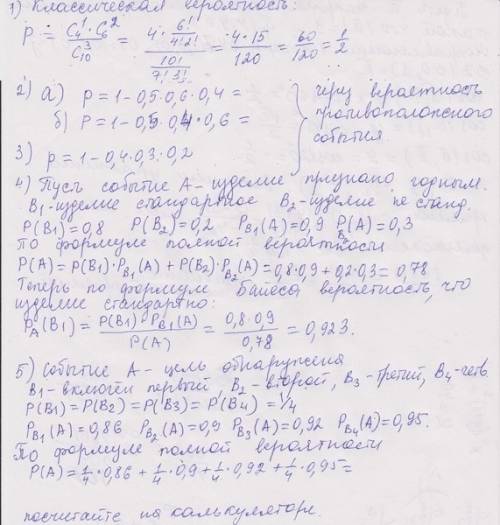 1) Классическая вероятность:
P = C₄¹ · C₆² / C₁₀³ = (4 · 6!/(4!2!)) / (10!/(7!3!)) = 4·15/120 = 60/120 = 1/2
2) а) P = 1 - 0,5 · 0,6 · 0,4 = } через вероятность
б) P = 1 - 0,5 · 0,4 · 0,6 = } противоположного события
3) P = 1 - 0,4 · 0,3 · 0,2
4) Пусть событие A - изделие признано годным.
B₁ - изделие стандартное B₂ - изделие не станд.
P(B₁) = 0,8 P(B₂) = 0,2 P_B₁(A) = 0,9 P_B₂(A) = 0,3
По формуле полной вероятности
P(A) = P(B₁) · P_B₁(A) + P(B₂) · P_B₂(A) = 0,8 · 0,9 + 0,2 · 0,3 = 0,78
Теперь по формуле Байеса вероятность, что
изделие стандартно:
P_A(B₁) = P(B₁) · P_B₁(A) / P(A) = 0,8 · 0,9 / 0,78 = 0,923.
5) Событие A - цель обнаружена
B₁ - включён первый, B₂ - второй, B₃ - третий, B₄ - четв.
P(B₁) = P(B₂) = P(B₃) = P(B₄) = 1/4
P_B₁(A) = 0,86 P_B₂(A) = 0,9 P_B₃(A) = 0,92 P_B₄(A) = 0,95.
По формуле полной вероятности
P(A) = 1/4 · 0,86 + 1/4 · 0,9 + 1/4 · 0,92 + 1/4 · 0,95 =
посчитайте на калькуляторе.